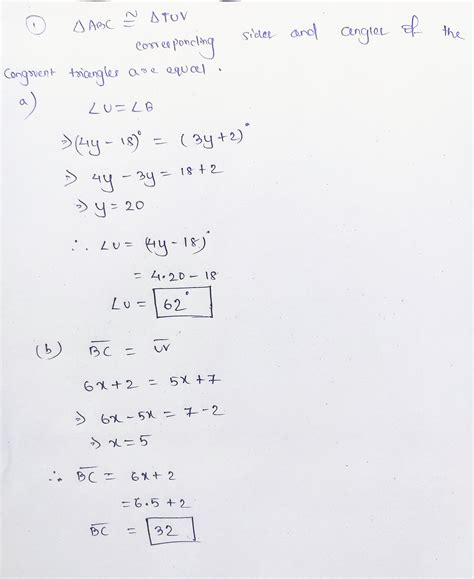 ① △ABC ≅ △TUV
corresponding sides and angles of the
Congruent triangles are equal.
a) ∠U = ∠B
⇒ (4y - 18)° = (3y + 2)°
⇒ 4y - 3y = 18 + 2
⇒ y = 20
∴ ∠U = (4y - 18)°
= 4.20 - 18
∠U = 62°
(b) BC̅ = UV̅
6x + 2 = 5x + 7
⇒ 6x - 5x = 7 - 2
⇒ x = 5
∴ BC̅ = 6x + 2
= 6.5 + 2
BC̅ = 32